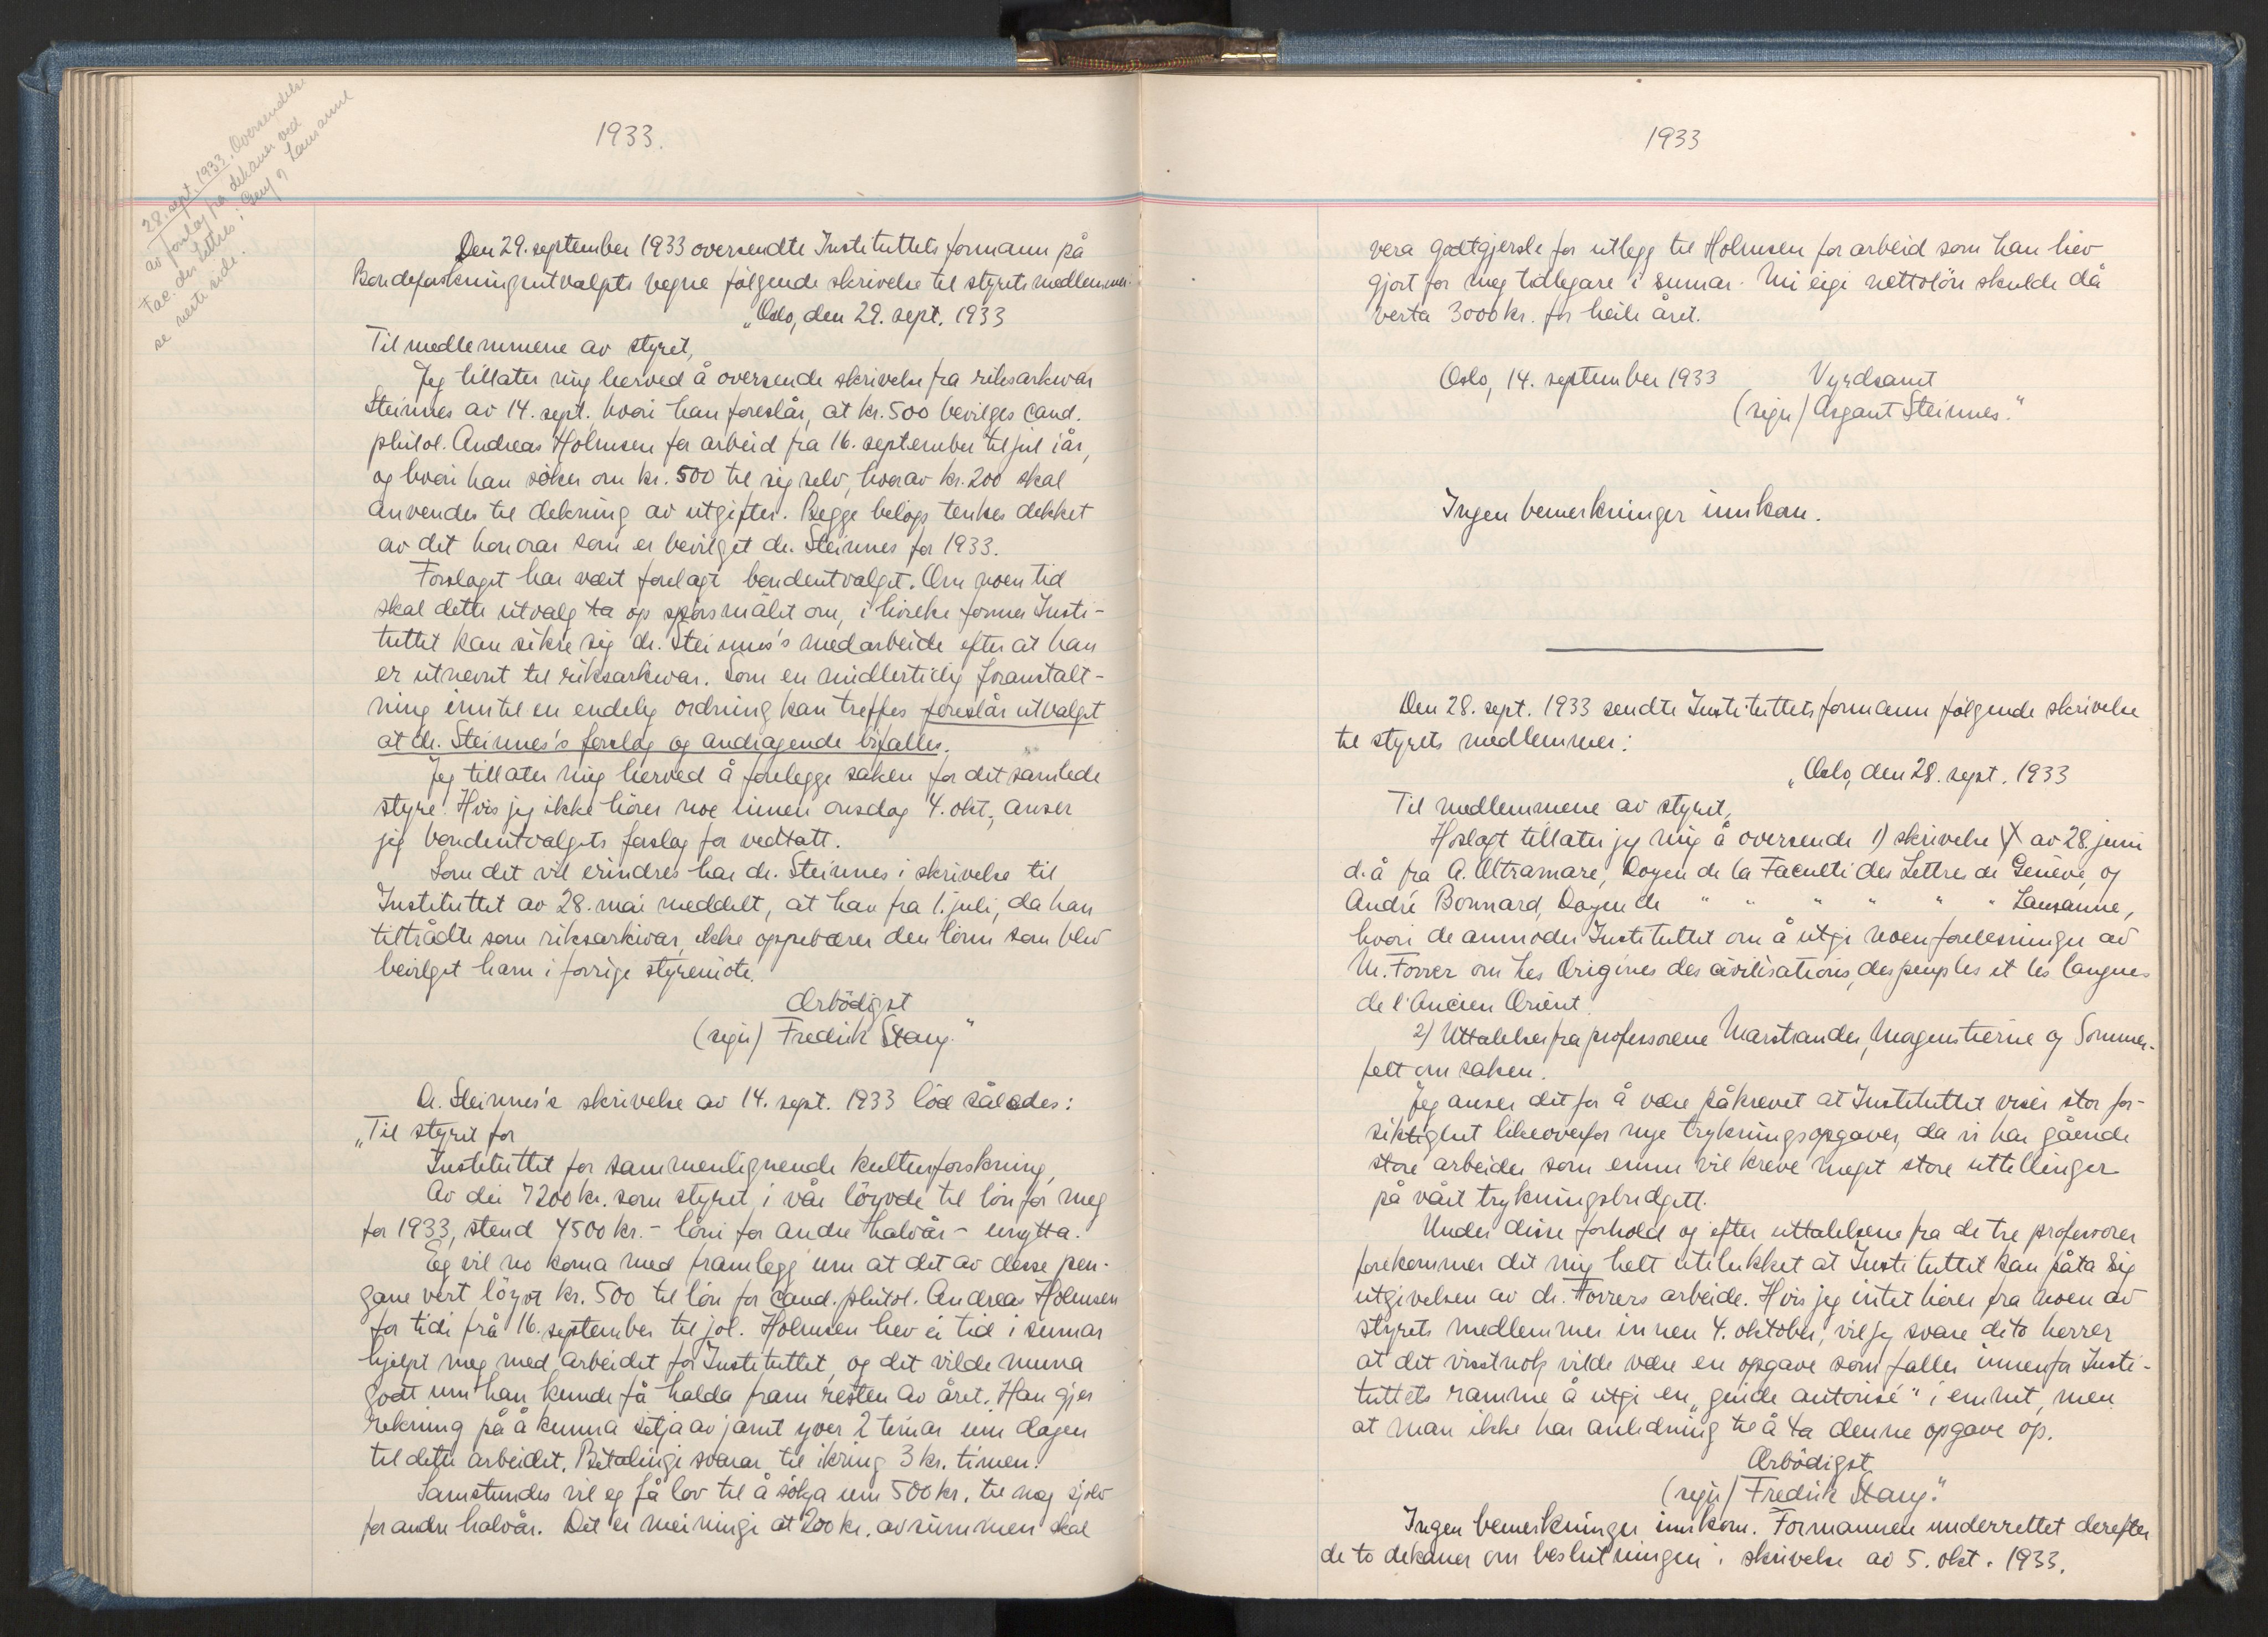 28. sept. 1933. Oversendelse
av forslag fra dekaner ved
Fac. des Lettres i Genf og Lausanne
se neste side.
1933.
Den 29. september 1933 oversendte Instituttets formann på
Bondeforskningsutvalgets vegne følgende skrivelse til styrets medlemmer:
„Oslo, den 29. sept. 1933
Til medlemmene av styret,
Jeg tillater mig herved å oversende skrivelse fra riksarkivar
Steinnes av 14. sept. hvori han foreslår, at kr. 500 bevilges cand.
philol. Andreas Holmsen for arbeid fra 16. september til jul iår,
og hvori han søker om kr. 500 til sig selv, hvorav kr. 200 skal
anvendes til dekning av utgifter. Begge beløp tenkes dekket
av det honorar som er bevilget dr. Steinnes for 1933.
Forslaget har vært forelagt bondeutvalget. Om noen tid
skal dette utvalg ta op spørsmålet om, i hvilke former Insti-
tuttet kan sikre sig dr. Steinnes's medarbeide efter at han
er utnevnt til riksarkivar. Som en midlertidig foranstalt-
ning inntil en endelig ordning kan treffes foreslår utvalget
at dr. Steinnes's forslag og andragende bifalles.
Jeg tillater mig herved å forelegge saken for det samlede
styre. Hvis jeg ikke hører noe innen onsdag 4. okt., anser
jeg bondeutvalgets forslag for vedtatt.
Som det vil erindres har dr. Steinnes i skrivelse til
Instituttet av 28. mai meddelt, at han fra 1. juli, da han
tiltrådte som riksarkivar, ikke oppebærer den lønn som blev
bevilget ham i forrige styremøte.
Ærbödigst
(sign) Fredrik Stang."
Dr. Steinnes's skrivelse av 14. sept. 1933 löd således:
„Til styret for
Instituttet for sammenlignende kulturforskning,
Av dei 7200 kr. som styret i vår löyvde til lön for meg
for 1933, stend 4500 kr. - löni for andre halvår - unytta.
Eg vil no koma med framlegg um at det av desse pen-
gane vert löyvt kr. 500 til lön for cand. philol. Andreas Holmsen
for tidi frå 16. september til jol. Holmsen hev ei tid i sumar
hjelpt meg med arbeidet for Instituttet, og det vilde muna
godt um han kunde få halda fram resten av året. Han gjer
rekning på å kunna setja av jamt yver 2 timar um dagen
til dette arbeidet. Betalingi svarar til ikring 3 kr. timen.
Samstundes vil eg få lov til å sökja um 500 kr. til meg sjölv
for andre halvår. Det er meiningi at 200 kr. av summen skal
1933
vera godtgjersle for utlegg til Holmsen for arbeid som han hev
gjort for meg tidlegare i sumar. Mi eigi nettolön skulde då
verta 3000 kr. for heile året.
Oslo, 14. september 1933 Vyrdsamt
(sign) Asgaut Steinnes."
Ingen bemerkninger innkom.
Den 28. sept. 1933 sendte Instituttets formann følgende skrivelse
til styrets medlemmer:
„Oslo, den 28. sept. 1933
Til medlemmene av styret,
Hoslagt tillater jeg mig å oversende 1) skrivelse av 28. juni
d.å fra A. Oltramare, Doyen de la Faculté des Lettres de Genève, og
André Bonnard, Doyen de " " " " " " Lausanne,
hvori de anmoder Instituttet om å utgi noen forelesninger av
M. Forrer om Les Origines des civilisations, des peuples et les langues
de l'Ancien Orient.
2) Uttalelser fra professorene Marstrander, Morgenstierne og Sommer-
felt om saken.
Jeg anser det for å være påkrevet at Instituttet viser stor for-
siktighet likeoverfor nye trykningsopgaver, da vi har gående
store arbeider som ennu vil kreve meget store uttellinger
på vårt trykningsbudgett.
Under disse forhold og efter uttalelsene fra de tre professorer
forekommer det mig helt utelukket at Instituttet kan påta sig
utgivelsen av dr. Forrers arbeide. Hvis jeg intet hører fra noen av
styrets medlemmer innen 4. oktober, vil jeg svare de to herrer
at det visstnok vilde være en opgave som faller innenfor Insti-
tuttets ramme å utgi en „guide autorisé" i emnet, men
at man ikke har anledning til å ta denne opgave op.
Ærbödigst
(sign) Fredrik Stang."
Ingen bemerkninger innkom. Formannen underrettet derefter
de to dekaner om beslutningen i skrivelse av 5. okt. 1933.